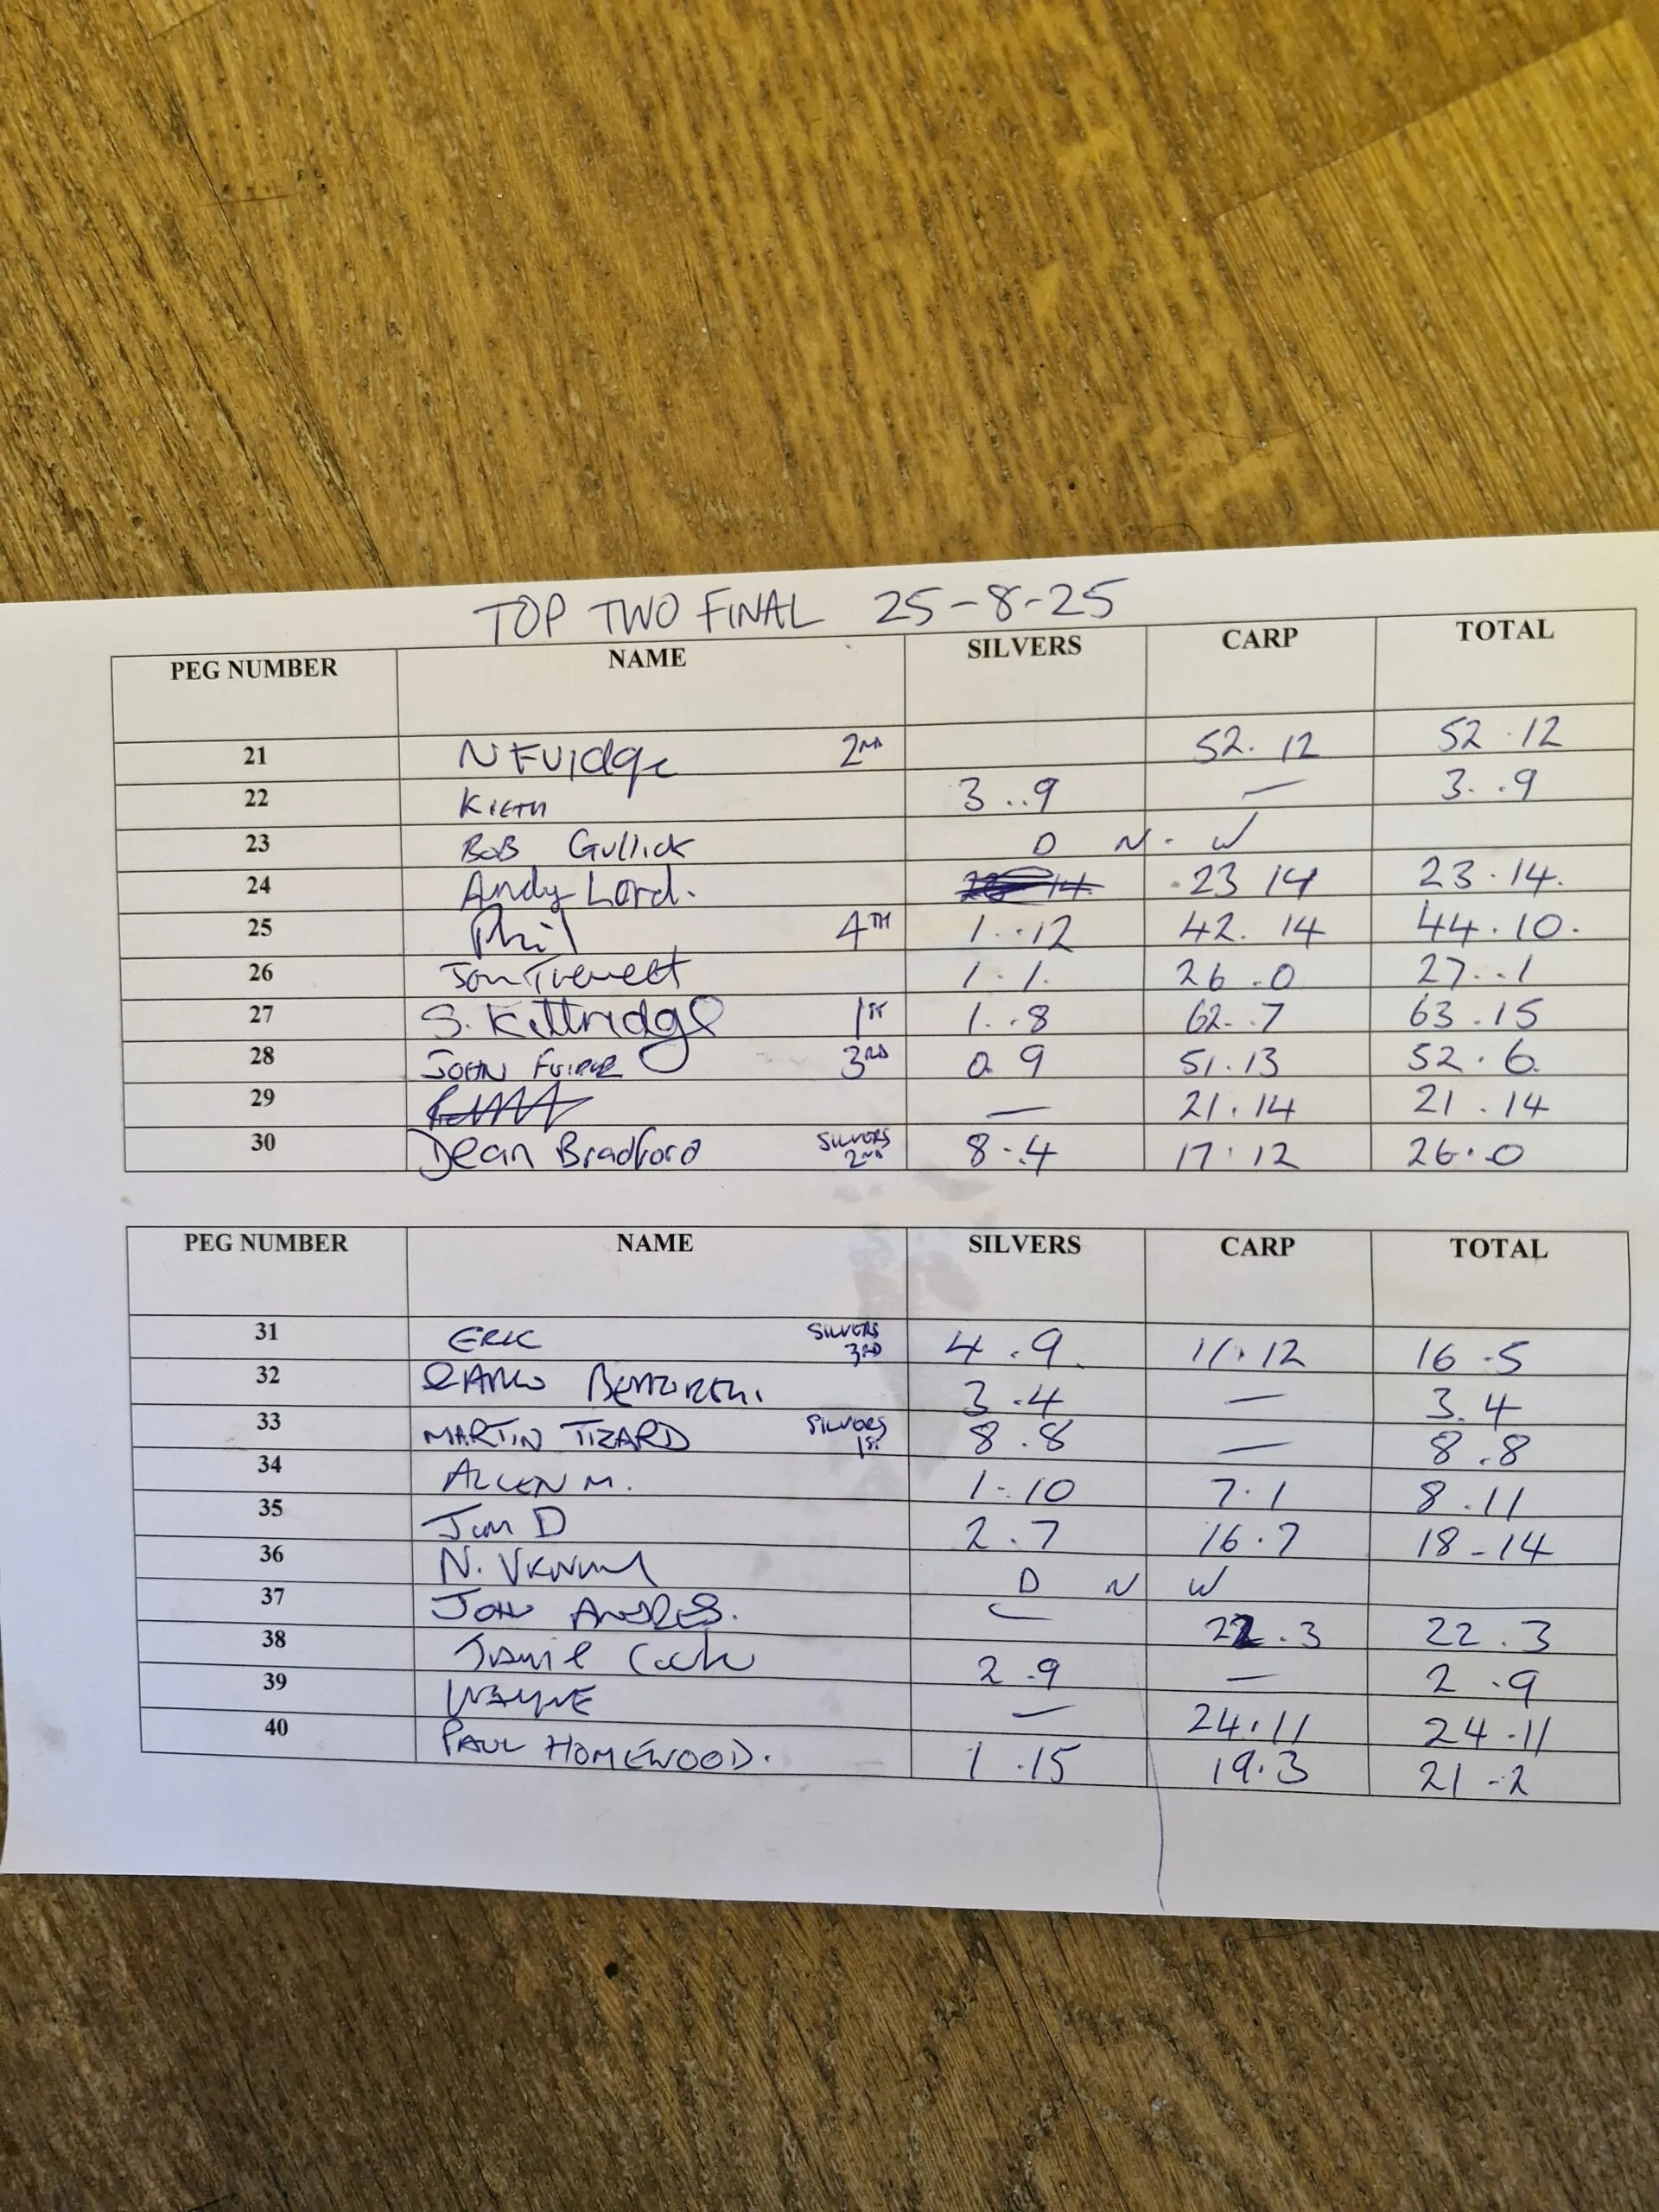 TOP TWO FINAL 25-8-25
PEG NUMBER NAME SILVERS CARP TOTAL
21 N Evidge 2ND 52.12 52.12
22 KIETH 3..9 — 3..9
23 BOB Gullick D N. W
24 Andy Lord. .23 14 23.14.
25 Phil 4TH 1..12 42.14 44.10.
26 Jon 1.1. 26.0 27..1
27 S. Kittridge 1ST 1..8 62..7 63.15
28 JOHN 3RD 0.9 51.13 52.6
29 — 21.14 21.14
30 Dean Bradford SILVERS 2ND 8..4 17.12 26.0
PEG NUMBER NAME SILVERS CARP TOTAL
31 ERIC SILVERS 3RD 4.9 11.12 16.5
32 3.4 — 3.4
33 MARTIN TIZARD SILVERS 1ST 8.8 — 8.8
34 ALLEN M. 1.10 7.1 8.11
35 Jim D 2.7 16.7 18-14
36 N. D N W
37 JOHN — 22.3 22.3
38 Jamie 2.9 — 2.9
39 WAYNE — 24.11 24.11
40 PAUL HOMEWOOD. 1.15 19.3 21-2